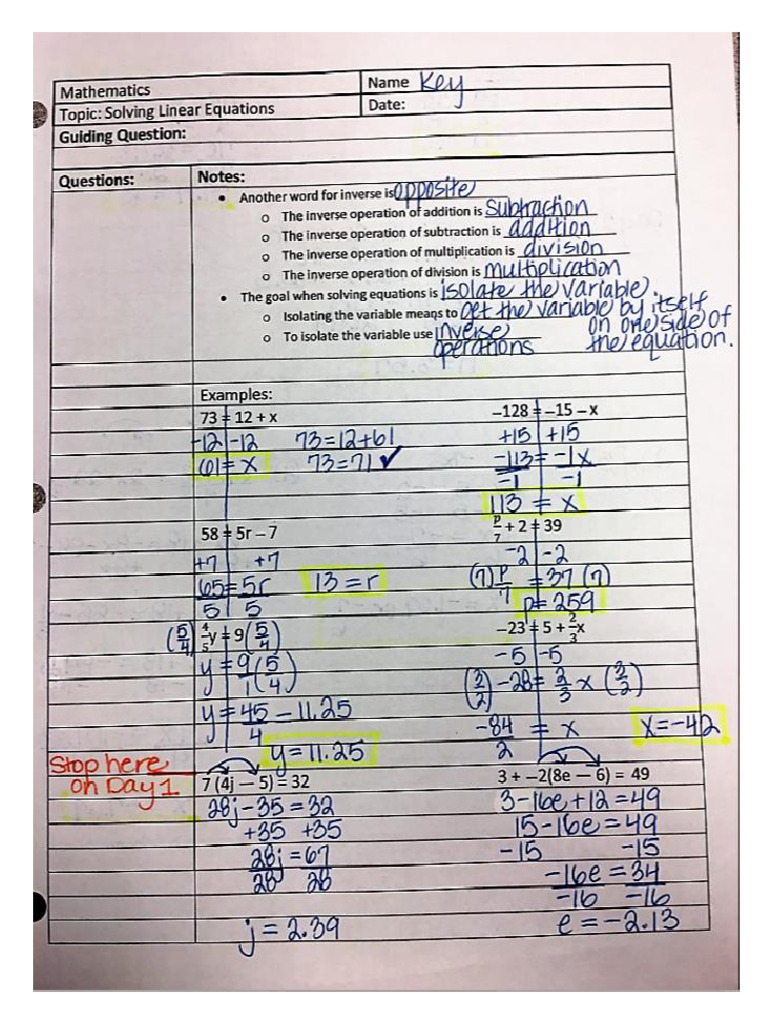 Mathematics
Name Key
Topic: Solving Linear Equations
Date:
Guiding Question:
Questions:
Notes:
• Another word for inverse is opposite
o The inverse operation of addition is Subtraction
o The inverse operation of subtraction is addition
o The inverse operation of multiplication is division
o The inverse operation of division is multiplication
• The goal when solving equations is isolate the variable.
o Isolating the variable means to get the variable by itself
on one side of
the equation.
o To isolate the variable use inverse
operations
Examples:
73 = 12 + x
-12 -12
61 = x
73=12+61
73=71 ✓
–128 = –15 – x
+15 +15
-113 = -1x
-1 -1
113 = x
58 = 5r – 7
+7 +7
65 = 5r
5 5
13 = r
p/7 + 2 = 39
-2 -2
(7) p/7 = 37 (7)
p = 259
(5/4) 4/5 y = 9 (5/4)
y = 9/1 (5/4)
y = 45/4 = 11.25
y = 11.25
–23 = 5 + 2/3 x
-5 -5
(3/2) -28 = 2/3 x (3/2)
-84/2 = x
x = -42
Stop here
on Day 1
7 (4j – 5) = 32
28j - 35 = 32
+35 +35
28j = 67
28 28
j = 2.39
3 + –2(8e – 6) = 49
3-16e+12=49
15-16e=49
-15 -15
-16e = 34
-16 -16
e = -2.13